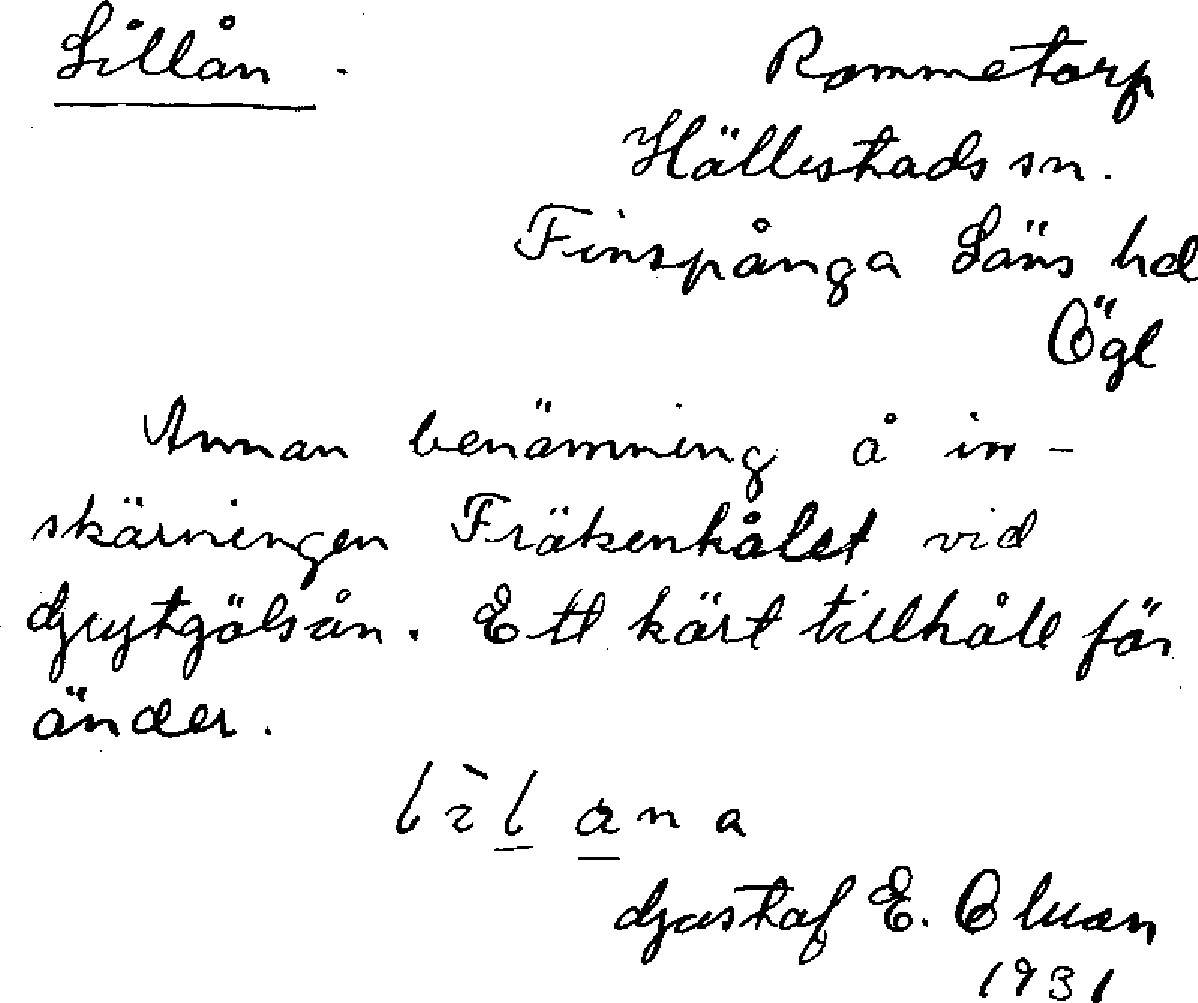 Lillån.
Rommetorp
Hällestads sn.
Finspånga Läns hd
Ögl
Annan benämning å in-
skärningen Fräkenhålet vid
Grytgölsån. Ett kärt tillhåll för
änder.
Gustaf E.
1931